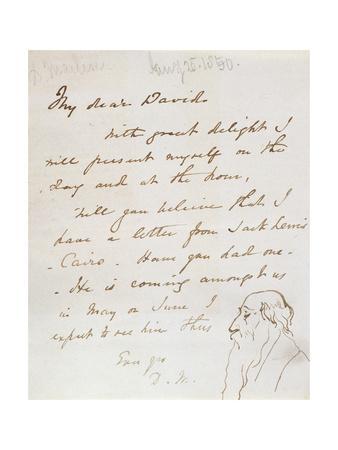 My dear David.
With great delight I
will present myself on the
day and at the hour,
Will you believe that I
have a letter from Jack Lewis
- Cairo. Have you had one -
- He is coming amongst us
in May or June I
expect to see him thus
D. W.